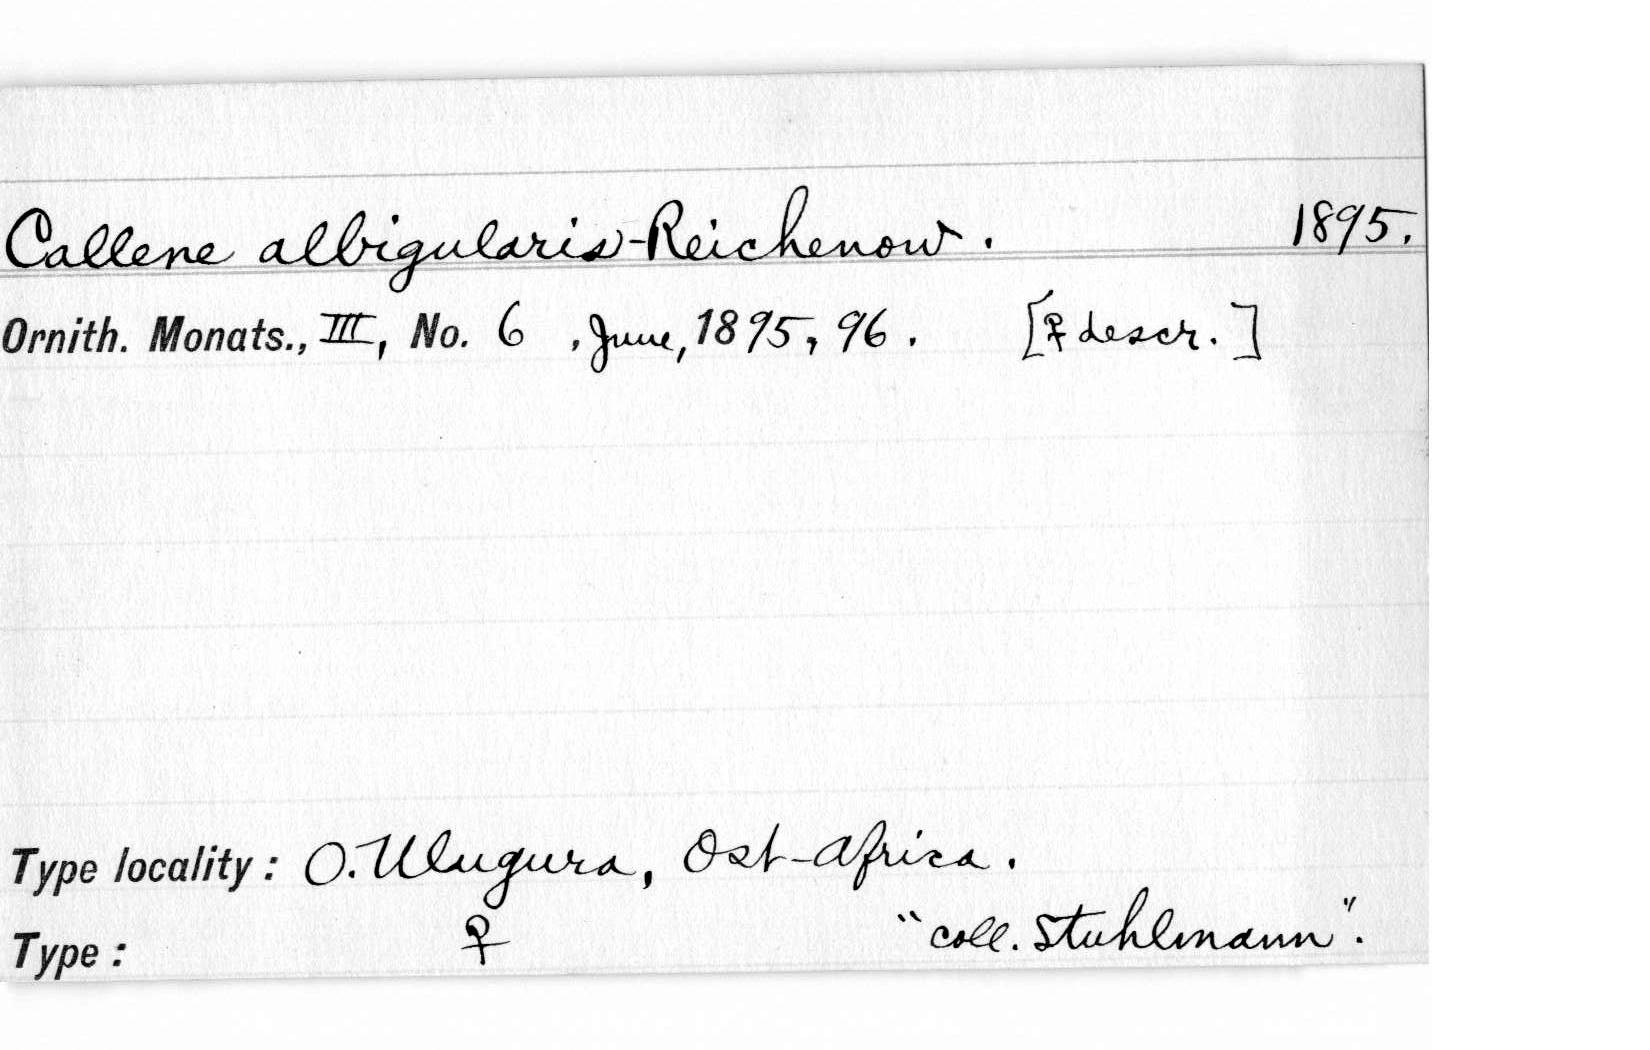 Callene albigularis-Reichenow. 1895.
Ornith. Monats., III, No. 6 , June, 1895, 96. [♀ descr.]
Type locality: O. Ulugura, Ost-Africa.
Type: ♀ "coll. Stuhlmann".